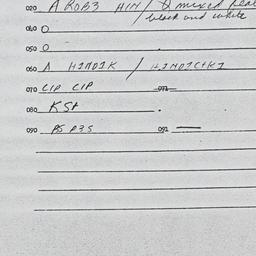 020 A ROB3 HIN/ & mixed
/ black and white
040 O
050 O
060 A HINDIK / HINDICHKI
070 CIP CIP 072
080 KSA .
090 PS P35 092 —